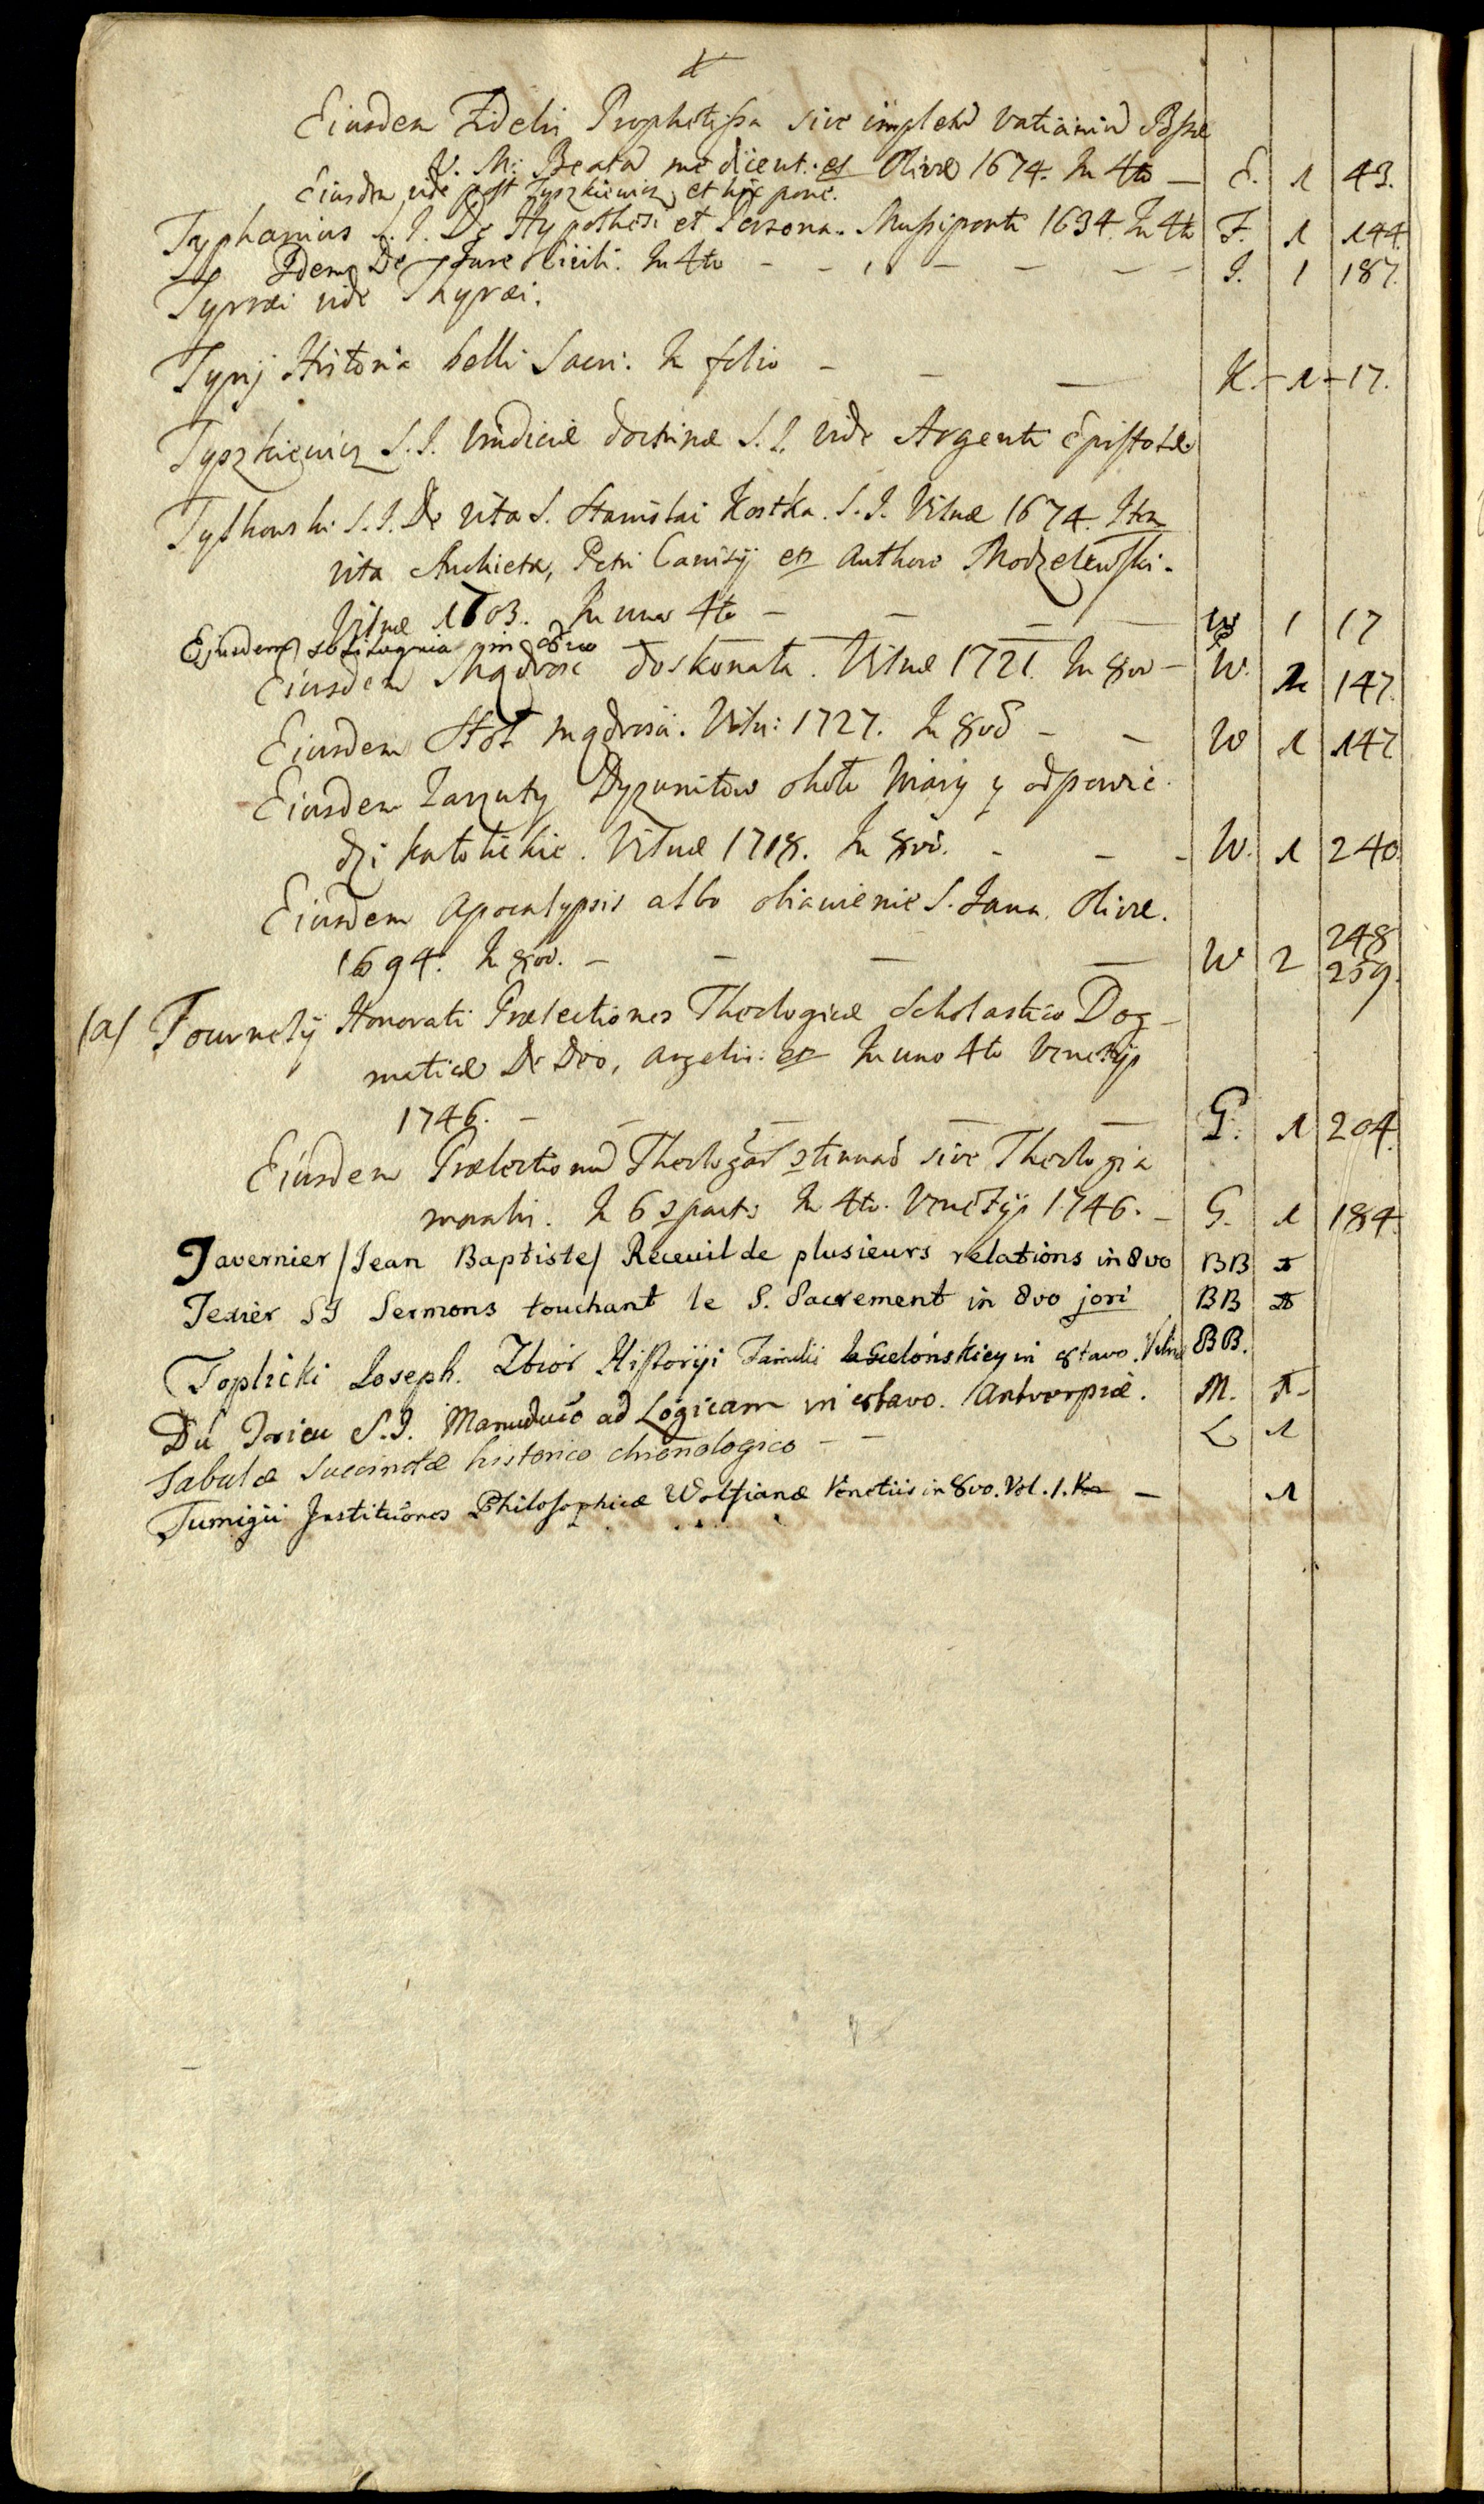 Eiusdem Fidelis Prophetissa sive impletū vaticiniū Bssæ
V. M. Beatā me dicent. et Olivæ 1674. In 4to — E. 1 43.
Eiusdem vide post Tyszkiewicz et hic pone.
Typhanius S. I. De Hypothesi et Persona. Mussiponti 1634. In 4to F. 1 144.
Idem De Jure Civili. In 4to - - - - - - I. 1 187.
Tyrræi vide Thyræi.
Tyrij Historia belli Sacri. In folio - - — K. - 1 - 17.
Tyszkiewicz S. I. Vindiciæ doctrinæ S. I. vide Argenti Epistolæ
Tylkowski S. I. De vita S. Stanislai Kostka. S. I. Vilnæ 1674. Item
vita Anchietæ, Petri Canisij et Authore Modzelewski.
Vilnæ 1603. In uno 4to - — — — W 1 17
Ejusdem Soliloquia in 8vo
Eiusdem Mądrosc doskonała. Vilnæ 1721. In 8vo — W. 147.
Eiusdem Stoł mądrosci. Viln: 1727. In 8vo - — W 1 147
Eiusdem Zarzuty Dyzunitow około Wiary y odpowie-
dzi katolickie. Vilnæ 1718. In 8vo. - - - W. 1 240.
Eiusdem Apocalypsis albo obiawienie S. Jana. Olivæ.
1694. In 8vo. - — — — W 2 248 259.
(a) Tournely Honorati Prælectiones Theologicæ Scholastico Dog-
maticæ De Deo, Angelis et In uno 4to Venetijs
1746. - — — — — G. 1 204.
Eiusdem Prælectionū Theologar̄ sive Theologia
moralis. In 6 part: In 4to. Venetijs 1746. - G. 1 184.
Tavernier /Jean Baptiste/ Receuil de plusieurs relations in 8vo BB 1
Texier SJ Sermons touchant le S. Sacrement in 8vo BB
Toplicki Joseph. Zbior Historyi Familii Jagielońskiey in 8tavo. Vilnæ BB.
Du Trieu S. J. Manuductio ad Logicam in octavo. Antverpiæ. M. 1 -
Tabulæ succinctæ historico chronologico - - L 1
Tumigii Institutiones Philosophicæ Wolfianæ Venetiis in 8vo. Vol. 1. — 1